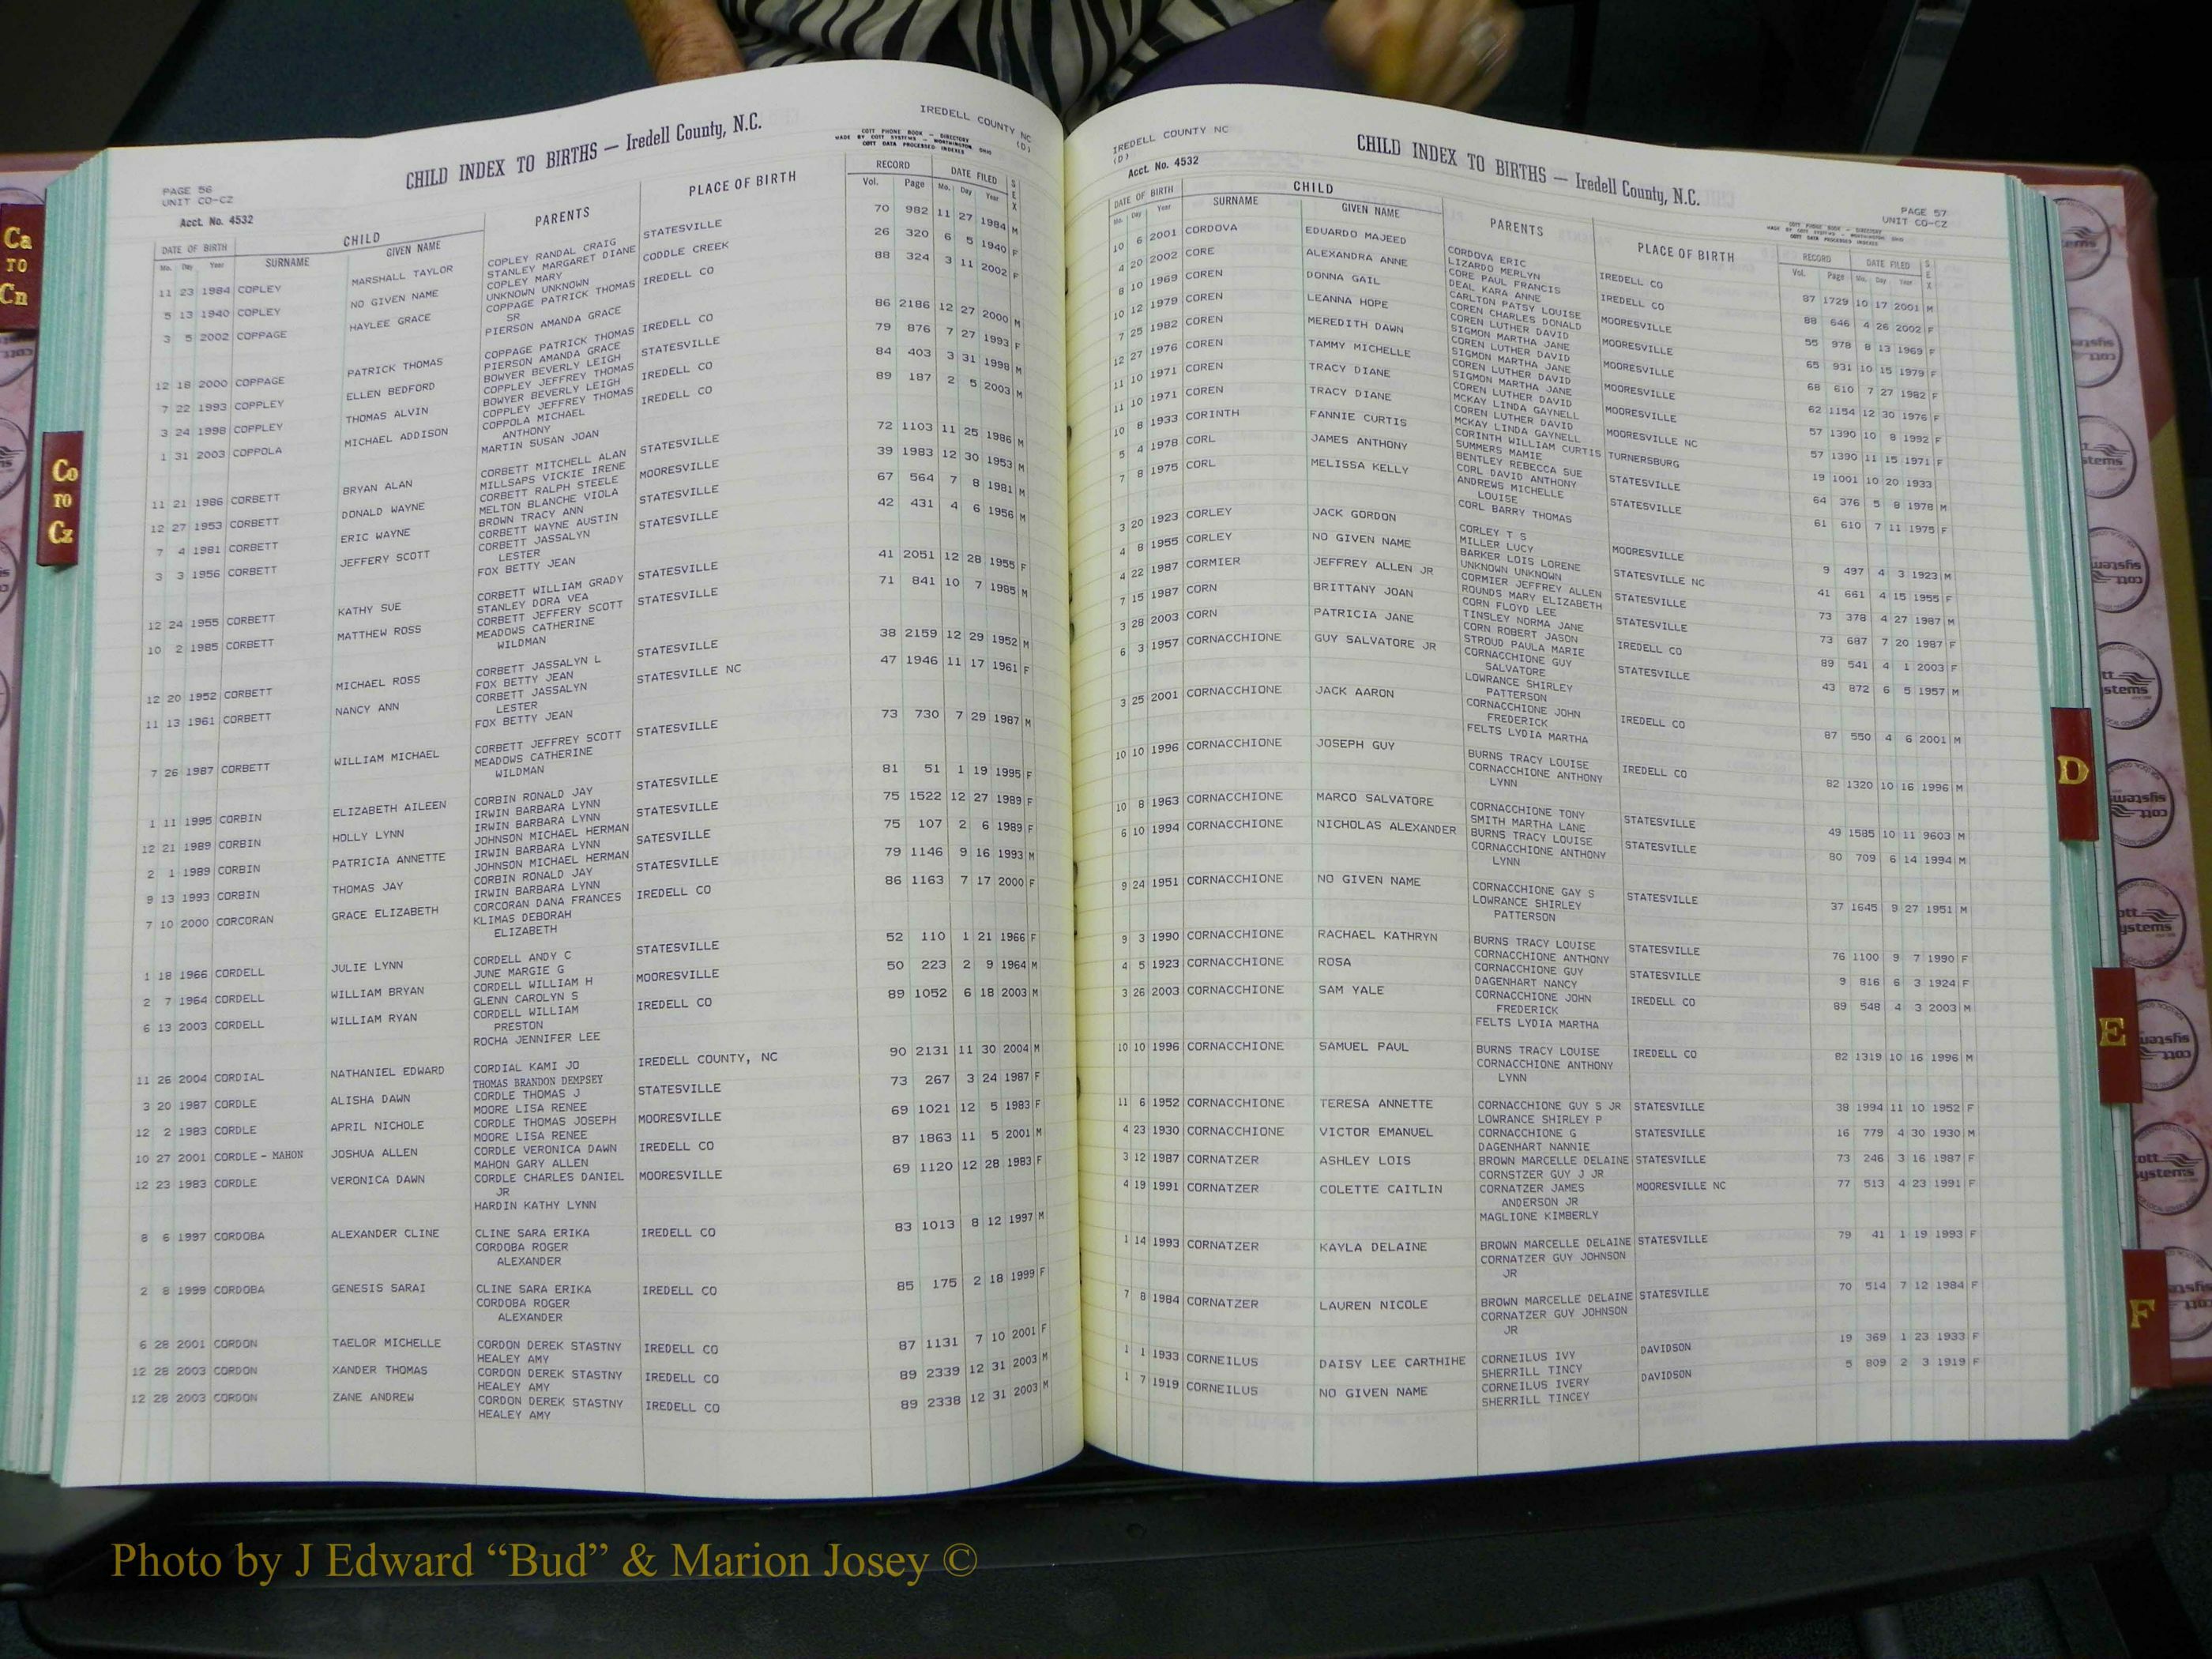 Ca
TO
Cn
Co
TO
Cz
IREDELL COUNTY NC
(D)
CHILD INDEX TO BIRTHS — Iredell County, N.C.
COTT PHONE BOOK — DIRECTORY
MADE BY COTT SYSTEMS — WORTHINGTON OHIO
COTT DATA PROCESSED INDEXES
PAGE 56
UNIT CO-CZ
Acct. No. 4532
DATE OF BIRTH CHILD PARENTS PLACE OF BIRTH RECORD DATE FILED SEX
Mo. Day Year SURNAME GIVEN NAME Vol. Page Mo. Day Year
11 23 1984 COPLEY MARSHALL TAYLOR COPLEY RANDAL CRAIG STATESVILLE 70 982 11 27 1984 M
STANLEY MARGARET DIANE
5 13 1940 COPLEY NO GIVEN NAME COPLEY MARY CODDLE CREEK 26 320 6 5 1940 F
UNKNOWN UNKNOWN
3 5 2002 COPPAGE HAYLEE GRACE COPPAGE PATRICK THOMAS IREDELL CO 88 324 3 11 2002 F
SR
PIERSON AMANDA GRACE
12 18 2000 COPPAGE PATRICK THOMAS COPPAGE PATRICK THOMAS IREDELL CO 86 2186 12 27 2000 M
PIERSON AMANDA GRACE
7 22 1993 COPPLEY ELLEN BEDFORD BOWYER BEVERLY LEIGH STATESVILLE 79 876 7 27 1993 F
COPPLEY JEFFREY THOMAS
3 24 1998 COPPLEY THOMAS ALVIN BOWYER BEVERLY LEIGH IREDELL CO 84 403 3 31 1998 M
COPPLEY JEFFREY THOMAS
1 31 2003 COPPOLA MICHAEL ADDISON COPPOLA MICHAEL IREDELL CO 89 187 2 5 2003 M
ANTHONY
MARTIN SUSAN JOAN
11 21 1986 CORBETT BRYAN ALAN CORBETT MITCHELL ALAN STATESVILLE 72 1103 11 25 1986 M
MILLSAPS VICKIE IRENE
12 27 1953 CORBETT DONALD WAYNE CORBETT RALPH STEELE MOORESVILLE 39 1983 12 30 1953 M
MELTON BLANCHE VIOLA
7 4 1981 CORBETT ERIC WAYNE BROWN TRACY ANN STATESVILLE 67 564 7 8 1981 M
CORBETT WAYNE AUSTIN
3 3 1956 CORBETT JEFFERY SCOTT CORBETT JASSALYN STATESVILLE 42 431 4 6 1956 M
LESTER
FOX BETTY JEAN
12 24 1955 CORBETT KATHY SUE CORBETT WILLIAM GRADY STATESVILLE 41 2051 12 28 1955 F
STANLEY DORA VEA
10 2 1985 CORBETT MATTHEW ROSS CORBETT JEFFERY SCOTT STATESVILLE 71 841 10 7 1985 M
MEADOWS CATHERINE
WILDMAN
12 20 1952 CORBETT MICHAEL ROSS CORBETT JASSALYN L STATESVILLE 38 2159 12 29 1952 M
FOX BETTY JEAN
11 13 1961 CORBETT NANCY ANN CORBETT JASSALYN STATESVILLE NC 47 1946 11 17 1961 F
LESTER
FOX BETTY JEAN
7 26 1987 CORBETT WILLIAM MICHAEL CORBETT JEFFREY SCOTT STATESVILLE 73 730 7 29 1987 M
MEADOWS CATHERINE
WILDMAN
1 11 1995 CORBIN ELIZABETH AILEEN CORBIN RONALD JAY STATESVILLE 81 51 1 19 1995 F
IRWIN BARBARA LYNN
12 21 1989 CORBIN HOLLY LYNN IRWIN BARBARA LYNN STATESVILLE 75 1522 12 27 1989 F
JOHNSON MICHAEL HERMAN
2 1 1989 CORBIN PATRICIA ANNETTE IRWIN BARBARA LYNN SATESVILLE 75 107 2 6 1989 F
JOHNSON MICHAEL HERMAN
9 13 1993 CORBIN THOMAS JAY CORBIN RONALD JAY STATESVILLE 79 1146 9 16 1993 M
IRWIN BARBARA LYNN
7 10 2000 CORCORAN GRACE ELIZABETH CORCORAN DANA FRANCES IREDELL CO 86 1163 7 17 2000 F
KLIMAS DEBORAH
ELIZABETH
1 18 1966 CORDELL JULIE LYNN CORDELL ANDY C STATESVILLE 52 110 1 21 1966 F
JUNE MARGIE G
2 7 1964 CORDELL WILLIAM BRYAN CORDELL WILLIAM H MOORESVILLE 50 223 2 9 1964 M
GLENN CAROLYN S
6 13 2003 CORDELL WILLIAM RYAN CORDELL WILLIAM IREDELL CO 89 1052 6 18 2003 M
PRESTON
ROCHA JENNIFER LEE
11 26 2004 CORDIAL NATHANIEL EDWARD CORDIAL KAMI JO IREDELL COUNTY, NC 90 2131 11 30 2004 M
THOMAS BRANDON DEMPSEY
3 20 1987 CORDLE ALISHA DAWN CORDLE THOMAS J STATESVILLE 73 267 3 24 1987 F
MOORE LISA RENEE
12 2 1983 CORDLE APRIL NICHOLE CORDLE THOMAS JOSEPH MOORESVILLE 69 1021 12 5 1983 F
MOORE LISA RENEE
10 27 2001 CORDLE - MAHON JOSHUA ALLEN CORDLE VERONICA DAWN IREDELL CO 87 1863 11 5 2001 M
MAHON GARY ALLEN
12 23 1983 CORDLE VERONICA DAWN CORDLE CHARLES DANIEL MOORESVILLE 69 1120 12 28 1983 F
JR
HARDIN KATHY LYNN
8 6 1997 CORDOBA ALEXANDER CLINE CLINE SARA ERIKA IREDELL CO 83 1013 8 12 1997 M
CORDOBA ROGER
ALEXANDER
2 8 1999 CORDOBA GENESIS SARAI CLINE SARA ERIKA IREDELL CO 85 175 2 18 1999 F
CORDOBA ROGER
ALEXANDER
6 28 2001 CORDON TAELOR MICHELLE CORDON DEREK STASTNY IREDELL CO 87 1131 7 10 2001 F
HEALEY AMY
12 28 2003 CORDON XANDER THOMAS CORDON DEREK STASTNY IREDELL CO 89 2339 12 31 2003 M
HEALEY AMY
12 28 2003 CORDON ZANE ANDREW CORDON DEREK STASTNY IREDELL CO 89 2338 12 31 2003 M
HEALEY AMY
IREDELL COUNTY NC
(D)
CHILD INDEX TO BIRTHS — Iredell County, N.C.
Acct. No. 4532
PAGE 57
UNIT CO-CZ
COTT PHONE BOOK — DIRECTORY
MADE BY COTT SYSTEMS — WORTHINGTON OHIO
COTT DATA PROCESSED INDEXES
DATE OF BIRTH CHILD PARENTS PLACE OF BIRTH RECORD DATE FILED SEX
Mo. Day Year SURNAME GIVEN NAME Vol. Page Mo. Day Year
10 6 2001 CORDOVA EDUARDO MAJEED CORDOVA ERIC IREDELL CO 87 1729 10 17 2001 M
LIZARDO MERLYN
4 20 2002 CORE ALEXANDRA ANNE CORE PAUL FRANCIS IREDELL CO 88 646 4 26 2002 F
DEAL KARA ANNE
8 10 1969 COREN DONNA GAIL CARLTON PATSY LOUISE MOORESVILLE 55 978 8 13 1969 F
COREN CHARLES DONALD
10 12 1979 COREN LEANNA HOPE COREN LUTHER DAVID MOORESVILLE 65 931 10 15 1979 F
SIGMON MARTHA JANE
7 25 1982 COREN MEREDITH DAWN COREN LUTHER DAVID MOORESVILLE 68 610 7 27 1982 F
SIGMON MARTHA JANE
12 27 1976 COREN TAMMY MICHELLE COREN LUTHER DAVID MOORESVILLE 62 1154 12 30 1976 F
SIGMON MARTHA JANE
11 10 1971 COREN TRACY DIANE COREN LUTHER DAVID MOORESVILLE 57 1390 10 8 1992 F
MCKAY LINDA GAYNELL
11 10 1971 COREN TRACY DIANE COREN LUTHER DAVID MOORESVILLE NC 57 1390 11 15 1971 F
MCKAY LINDA GAYNELL
10 8 1933 CORINTH FANNIE CURTIS CORINTH WILLIAM CURTIS TURNERSBURG 19 1001 10 20 1933
SUMMERS MAMIE
5 4 1978 CORL JAMES ANTHONY BENTLEY REBECCA SUE STATESVILLE 64 376 5 8 1978 M
CORL DAVID ANTHONY
7 8 1975 CORL MELISSA KELLY ANDREWS MICHELLE STATESVILLE 61 610 7 11 1975 F
LOUISE
CORL BARRY THOMAS
3 20 1923 CORLEY JACK GORDON CORLEY T S MOORESVILLE 9 497 4 3 1923 M
MILLER LUCY
4 8 1955 CORLEY NO GIVEN NAME BARKER LOIS LORENE STATESVILLE NC 41 661 4 15 1955 F
UNKNOWN UNKNOWN
4 22 1987 CORMIER JEFFREY ALLEN JR CORMIER JEFFREY ALLEN STATESVILLE 73 378 4 27 1987 M
ROUNDS MARY ELIZABETH
7 15 1987 CORN BRITTANY JOAN CORN FLOYD LEE STATESVILLE 73 687 7 20 1987 F
TINSLEY NORMA JANE
3 28 2003 CORN PATRICIA JANE CORN ROBERT JASON IREDELL CO 89 541 4 1 2003 F
STROUD PAULA MARIE
6 3 1957 CORNACCHIONE GUY SALVATORE JR CORNACCHIONE GUY STATESVILLE 43 872 6 5 1957 M
SALVATORE
LOWRANCE SHIRLEY
PATTERSON
3 25 2001 CORNACCHIONE JACK AARON CORNACCHIONE JOHN IREDELL CO 87 550 4 6 2001 M
FREDERICK
FELTS LYDIA MARTHA
10 10 1996 CORNACCHIONE JOSEPH GUY BURNS TRACY LOUISE IREDELL CO 82 1320 10 16 1996 M
CORNACCHIONE ANTHONY
LYNN
10 8 1963 CORNACCHIONE MARCO SALVATORE CORNACCHIONE TONY STATESVILLE 49 1585 10 11 9603 M
SMITH MARTHA LANE
6 10 1994 CORNACCHIONE NICHOLAS ALEXANDER BURNS TRACY LOUISE STATESVILLE 80 709 6 14 1994 M
CORNACCHIONE ANTHONY
LYNN
9 24 1951 CORNACCHIONE NO GIVEN NAME CORNACCHIONE GAY S STATESVILLE 37 1645 9 27 1951 M
LOWRANCE SHIRLEY
PATTERSON
9 3 1990 CORNACCHIONE RACHAEL KATHRYN BURNS TRACY LOUISE STATESVILLE 76 1100 9 7 1990 F
CORNACCHIONE ANTHONY
4 5 1923 CORNACCHIONE ROSA CORNACCHIONE GUY STATESVILLE 9 816 6 3 1924 F
DAGENHART NANCY
3 26 2003 CORNACCHIONE SAM YALE CORNACCHIONE JOHN IREDELL CO 89 548 4 3 2003 M
FREDERICK
FELTS LYDIA MARTHA
10 10 1996 CORNACCHIONE SAMUEL PAUL BURNS TRACY LOUISE IREDELL CO 82 1319 10 16 1996 M
CORNACCHIONE ANTHONY
LYNN
11 6 1952 CORNACCHIONE TERESA ANNETTE CORNACCHIONE GUY S JR STATESVILLE 38 1994 11 10 1952 F
LOWRANCE SHIRLEY P
4 23 1930 CORNACCHIONE VICTOR EMANUEL CORNACCHIONE G STATESVILLE 16 779 4 30 1930 M
DAGENHART NANNIE
3 12 1987 CORNATZER ASHLEY LOIS BROWN MARCELLE DELAINE STATESVILLE 73 246 3 16 1987 F
CORNSTZER GUY J JR
4 19 1991 CORNATZER COLETTE CAITLIN CORNATZER JAMES MOORESVILLE NC 77 513 4 23 1991 F
ANDERSON JR
MAGLIONE KIMBERLY
1 14 1993 CORNATZER KAYLA DELAINE BROWN MARCELLE DELAINE STATESVILLE 79 41 1 19 1993 F
CORNATZER GUY JOHNSON
JR
7 8 1984 CORNATZER LAUREN NICOLE BROWN MARCELLE DELAINE STATESVILLE 70 514 7 12 1984 F
CORNATZER GUY JOHNSON
JR
1 1 1933 CORNEILUS DAISY LEE CARTHIHE CORNEILUS IVY DAVIDSON 19 369 1 23 1933 F
SHERRILL TINCY
1 7 1919 CORNEILUS NO GIVEN NAME CORNEILUS IVERY DAVIDSON 5 809 2 3 1919 F
SHERRILL TINCEY
D
E
F
Photo by J Edward “Bud” & Marion Josey ©